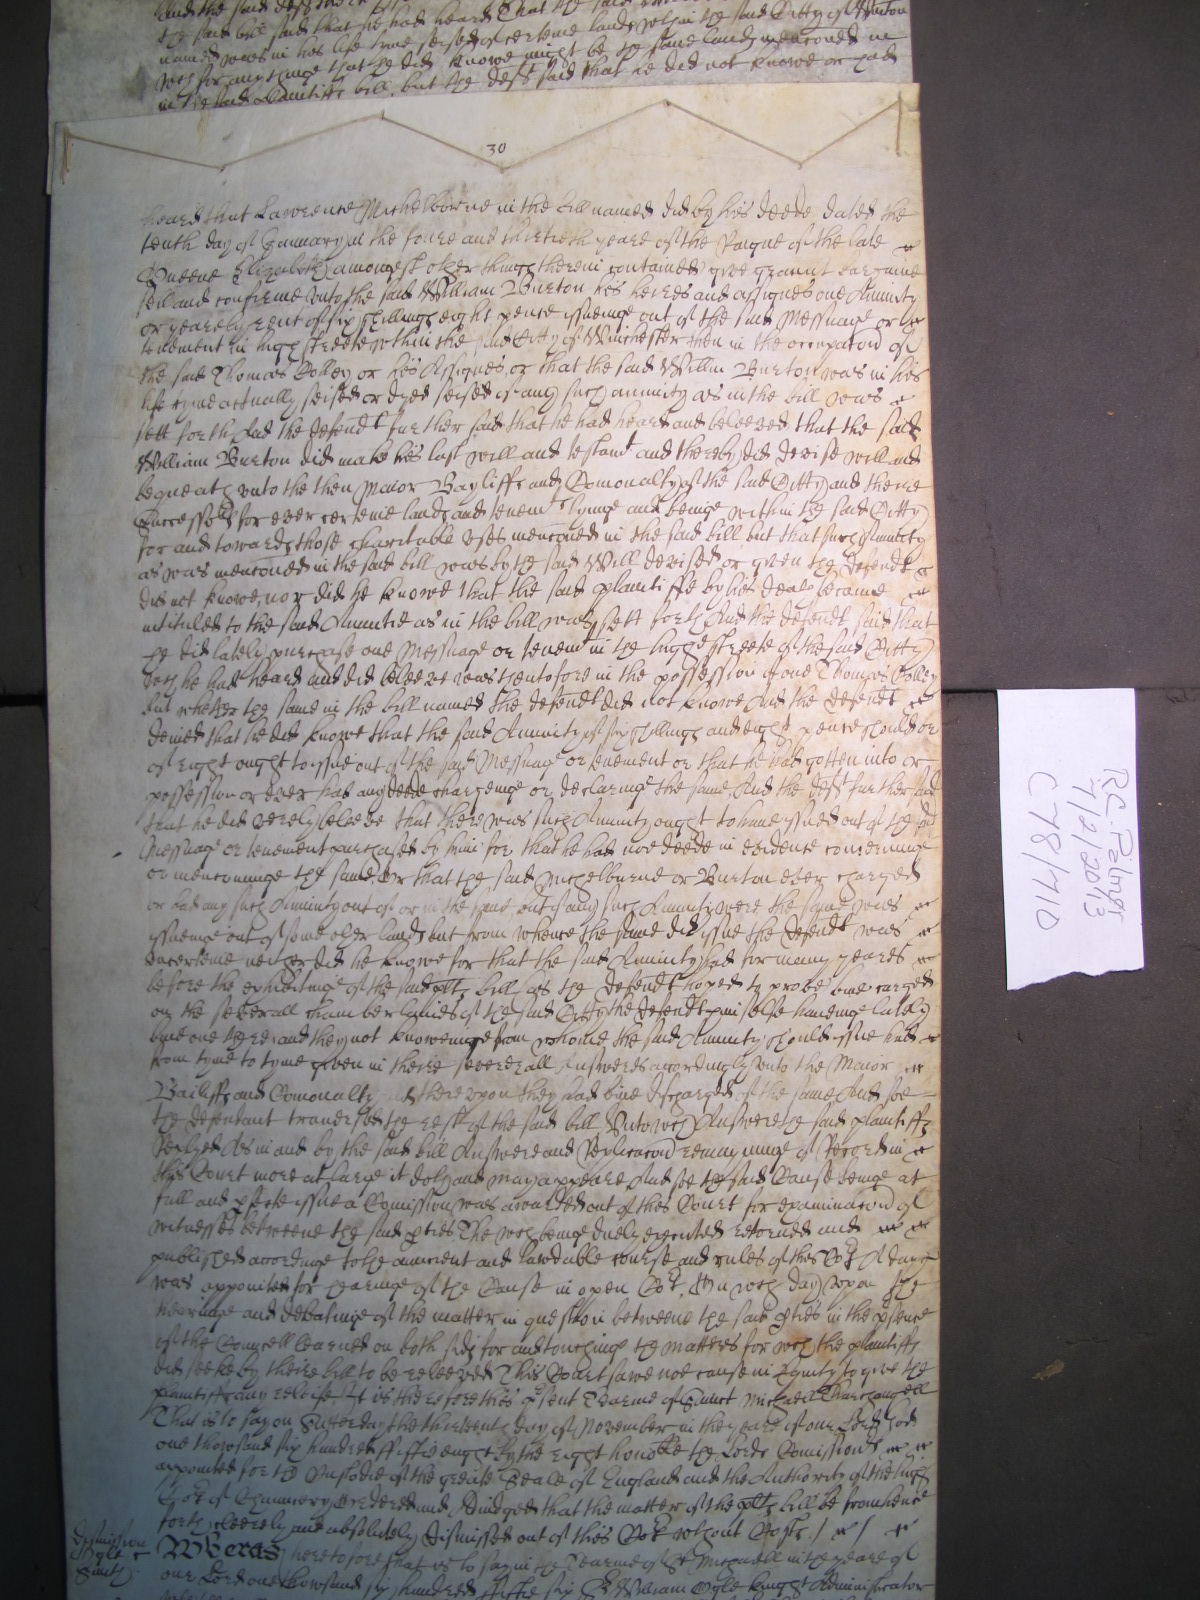 the said bill said that he had heard That the said
named was in his life tyme seised of certeine lands within the said Citty of Winton
wch for any thinge that he did knowe might be the same lands menconed in
in the said plaintiffs bill, but the deft said that he did not knowe or had
30
heard that Lawrence Michelborne in the bill named did by his deede dated the
tenth day of January in the foure and thirtieth yeare of the Raigne of the late
Queene Elizabeth amongest other things therein conteined give graunt bargaine
sell and confirme unto the said William Burton his heires and assignes one Annuity
or yearely rent of six shillings eight pence issueinge out of the said Messuage or
tenement in high streete within the said Citty of Winchester then in the occupacon of
the said Thomas Colley or his Assignes, or that the said Willm Burton was in his
life tyme actually seised or dyed seised of any such annuity as in the bill was
sett forth And the defendt further said that he had heard and beleeved that the said
William Burton did make his last will and testamt and thereby did devise will and
bequeath unto the then Maior Bayliffs and Comonalty of the said Citty and theire
Successors for ever certeine lands and tenemts lyinge and beinge within the said Citty
for and towards those charitable uses menconed in the said bill but that such Annuity
as was menconed in the said bill was by the said Will devised or given the Defendt
did not knowe, nor did he knowe that the said plaintiffe by his death became
intituled to the said Annuitie as in the bill was sett forth And the defendt said that
he did lately purchase one Messuage or tenemt in the highe streete of the said Citty
wch he had heard and did beleeve was heretofore in the possession of one Thomas Colley
but whether the same in the bill named the defendt did not knowe And the defendt
denied that he did knowe that the said Annuity of six shillings and eight pence should or
of right ought to issue out of the said Messuage or tenement or that he had gotten into or
possession or ever had any deede chargeinge or declaringe the same, And the deft further said
that he did verely beleeve that there was such Annuity ought to have issued out of the said
Messuage or tenement purchased by him for that he had noe deede in evidence concerninge
or menconinge the same, Or that the said Michelbourne or Burton ever charged
or had any such Annuity out of or in the same but if any such Annuity were the same was
issueinge out of some other lands but from whence the same did issue the Defendt was
incerteine neither did he knowe for that the said Annuity had for many yeares
before the exhibitinge of the said plts bill, as the defendt hoped to prove bine charged
on the severall chamberlaines of the said Citty the Defendt himselfe haveinge lately
bine one there and they not knoweinge from whome the said Annuity should issue had
from tyme to tyme given in theire severall Answeres accordingly unto the Maior
Bailiffs and Comonalty and thereupon they had bine discharged of the same And soe
the defendant traversed the rest of the said bill, Unto wch Answere the said plaintiffs
replyed As in and by the said bill Answere and Replicacon remayninge of Record in
this Court more at large it doth and may appeare And soe the said Cause beinge at
full and pfecte issue a Comission was awarded out of this Court for examinacon of
witnesses betweene the said pties The wch being duely executed retorned and
published accordinge to the auncient and lawdable course and rules of this Cort A daye
was appointed for hearinge of the Cause in open Cort, On wch day Upon the
hearinge and debatinge of the matter in question betweene the said pties in the psence
of the Councell learned on both sids for and touchinge the matters for wch the plaintiffs
did seeke by theire bill to be releeved This Court sawe noe cause in Equity to give the
plaintiffs any releife It is therefore this psent Tearme of Saint Michaell Tharchangell
That is to say on Satterday the thirteenth day of November in the yeare of our Lord god
one thowsand six hundred fiftie eight by the right honoble the Lords Comissionrs
appointed for the Custodie of the greate Seale of England and the Authority of the high
Cort of Chauncery Ordered and Adiudged that the matter of the plts bill be from hence
forth cleerely and absolutely dismissed out of this Cort without Costs /
Dismission
Ogle
Smith
Wheras heretofore that is to say in the Tearme of St Michaell in the yeare of
our Lord one thowsand six hundred fiftie six Sr William Ogle knight Administrator
RC. Palmer
7/2/2013
C78/710